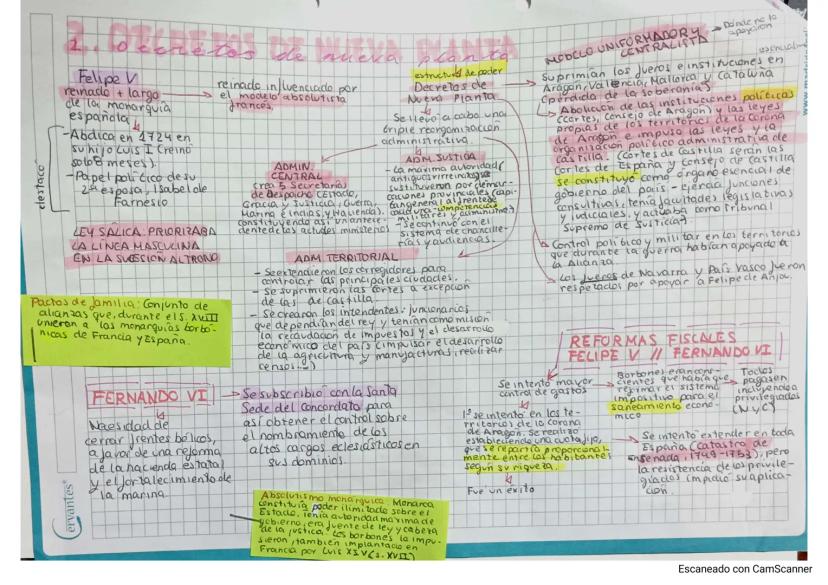 2. DECRETOS DE NUEVA PLANTA
Decretos de nueva planta
Felipe V
reinado + largo
de la monarquía
española
- Abdica en 1724 en
su hijo Luis I (reinó
solo 8 meses).
- Papel político de su
2ª esposa, Isabel de
Farnesio
destacó
reinado influenciado por
el modelo absolutista
francés.
LEY SÁLICA: PRIORIZABA
LA LÍNEA MASCULINA
EN LA SUCESIÓN AL TRONO
Pactos de familia: Conjunto de
alianzas que, durante el S. XVIII
unieron a las monarquías borbó-
nicas de Francia y España.
estructura de poder
Decretos de
Nueva Planta
Se llevó a cabo una
triple reorganización
administrativa.
ADMIN.
CENTRAL
crea 5 Secretarías
de Despacho (Estado,
Gracia y Justicia, Guerra,
Marina e Indias, y Hacienda).
constituyendo así un antece-
dente de los actuales ministerios
ADM. JUSTICIA
- La máxima autoridad (
antiguos virreinatos
sustituyeron por demar-
caciones provinciales (capi-
tan general al frente de
cada una - competencias
militares y administrat)
- Se continuó con el
sistema de chancille-
rías y audiencias.
ADM. TERRITORIAL
- Se extendieron los corregidores para
controlar las principales ciudades.
- Se suprimieron las cortes a excepción
de las de Castilla.
- Se crearon los intendentes: funcionarios
que dependían del rey y tenían como misión
la recaudación de impuestos y el desarrollo
económico del país (impulsar el desarrollo
de la agricultura y manufacturas, realizar
censos...)
MODELO UNIFORMADOR Y
CENTRALISTA
Donde no lo
apoyaron
Suprimían los fueros e instituciones en
Aragón, Valencia, Mallorca y Cataluña
(pérdida de la soberanía).
Abolición de las instituciones políticas
(cortes, Consejo de Aragón) y las leyes
propias de los territorios de la Corona
de Aragón e impuso las leyes y la
organización político administrativa de
Castilla. (Cortes de Castilla serán las
Cortes de España y Consejo de Castilla
se constituyó como órgano esencial de
gobierno del país - ejercía funciones
consultivas, tenía facultades legislativas
y judiciales, y actuaba como Tribunal
Supremo de Justicia)
Control político y militar en los territorios
que durante la guerra habían apoyado a
la Alianza.
Los fueros de Navarra y País Vasco fueron
respetados por apoyar a Felipe de Anjou.
FERNANDO VI
Se subscribió con la Santa
Sede del Concordato para
así obtener el control sobre
el nombramiento de los
altos cargos eclesiásticos en
sus dominios.
Necesidad de
cerrar frentes bélicos,
a favor de una reforma
de la hacienda estatal
y el fortalecimiento de
la marina.
REFORMAS FISCALES
FELIPE V // FERNANDO VI
Se intentó mayor
control de gastos
Borbones eran cons-
cientes que había que
reformar el sistema
impositivo para el
saneamiento econó-
mico
Todos
pagasen
incluyendo a
privilegiados
(N y C)
1º se intentó en los te-
rritorios de la corona
de Aragón. Se realizó
estableciendo una cuota fija,
que se repartía proporcional-
mente entre los habitantes
según su riqueza.
Fue un éxito
Se intentó extender en toda
España (Catastro de
Ensenada, 1749-1753), pero
la resistencia de los privile-
giados impidió su aplica-
ción.
Absolutismo monárquico: Monarca
constituía poder ilimitado sobre el
Estado. Tenía autoridad máxima de
gobierno, era fuente de ley y cabeza
de la justicia. Los borbones la impu-
sieron, también implantado en
Francia por Luis XIV (S. XVII)
Cervantes®
Escaneado con CamScanner